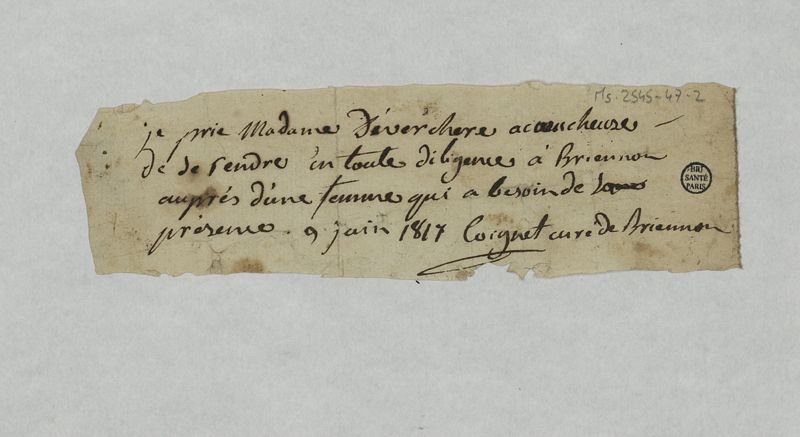 Ms. 2545-47-2
je prie Madame Déverchere accoucheuse
de se rendre en toute diligence à Briennon
auprés d'une femme qui a besoin de
présence. 9 juin 1817 Coignet curé de Briennon
BIU
SANTÉ
PARIS